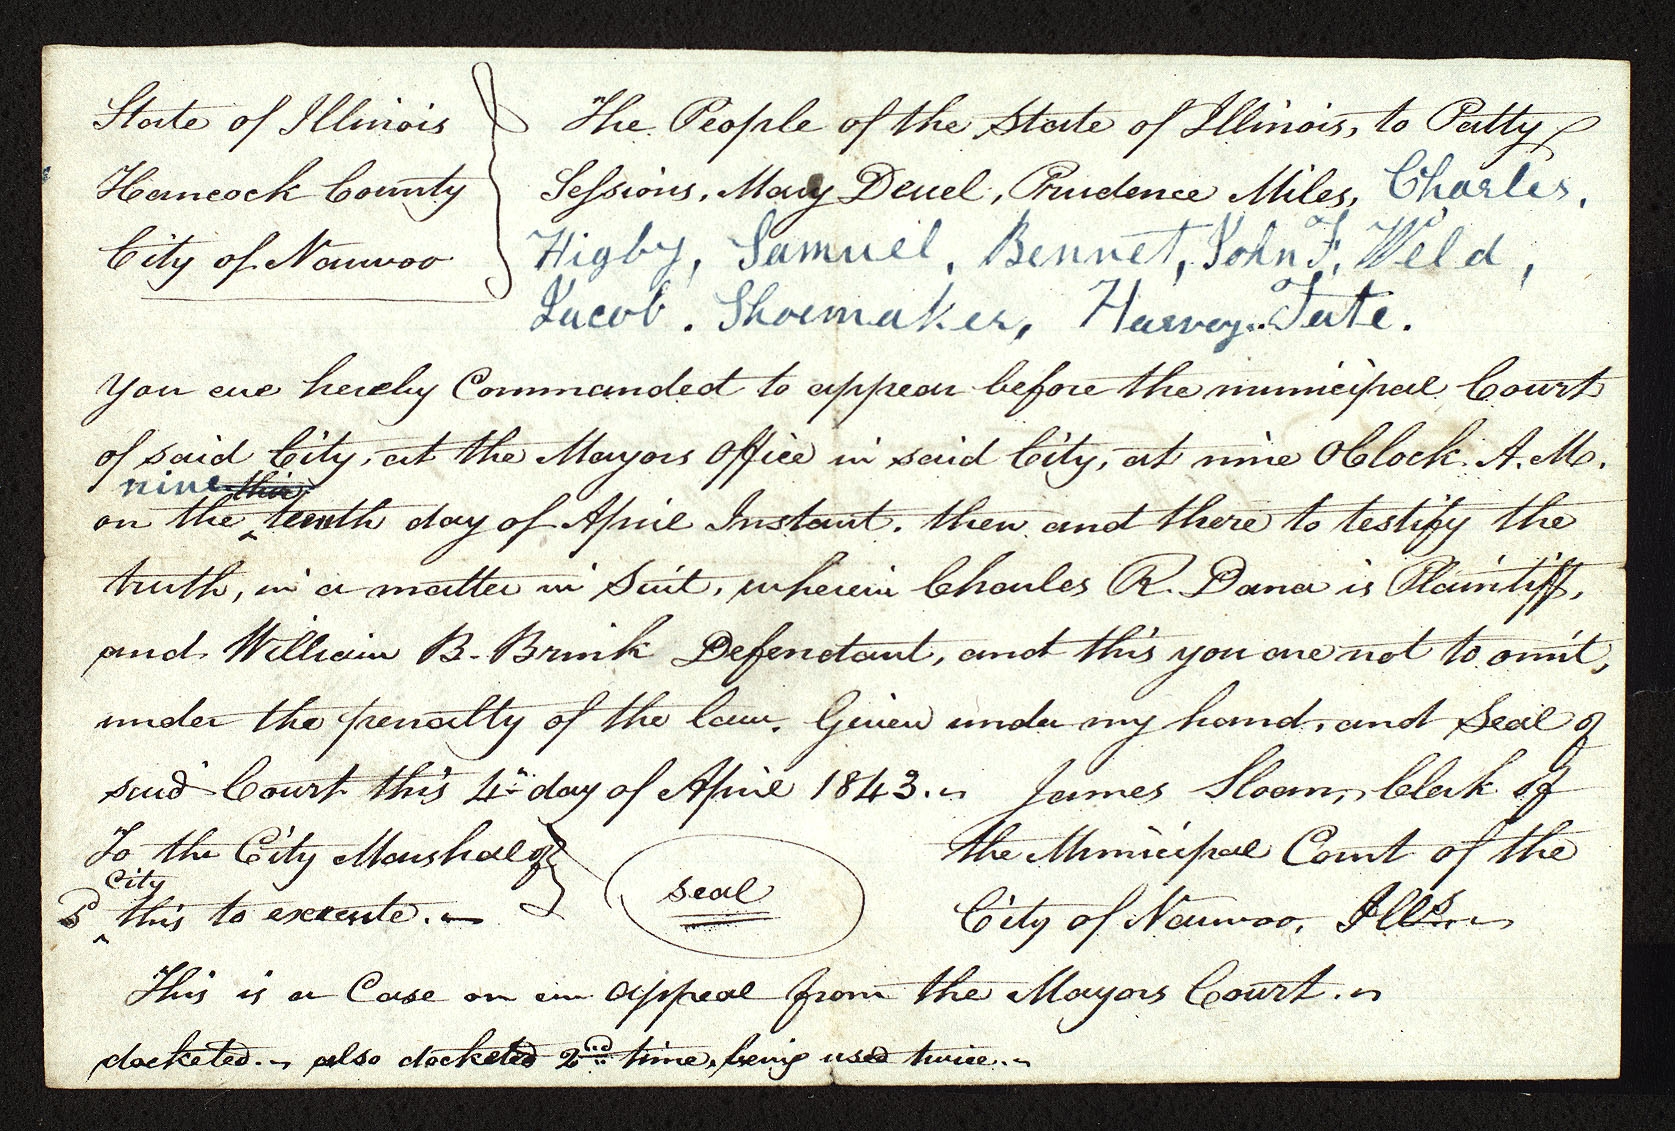 State of Illinois
Hancock County
City of Nauvoo
The People of the State of Illinois, to Patty
Sessions, Mary Deuel, Prudence Miles, Charles,
Higby, Samuel, Bennet, John F, Weld,
Jacob. Shoemaker, Harvey.. Tate.
You are hereby Commanded to appear before the municipal Court
of said City, at the Mayors Office in said City, at nine OClock. A.M.
nine
on the tenth day of April Instant. then and there to testify the
truth, in a matter in Suit, wherein Charles R. Dana is Plaintiff,
and William B. Brink Defendant, and this you are not to omit,
under the penalty of the law. Given under my hand, and Seal of
said Court this 4th day of April 1843. James Sloan, Clerk of
To the City Marshal of
the Municipal Court of the
City
Sd this to execute.
seal
City of Nauvoo, Ills
This is a Case on an appeal from the Mayors Court.
docketed. also docketed 2nd time, being used twice.